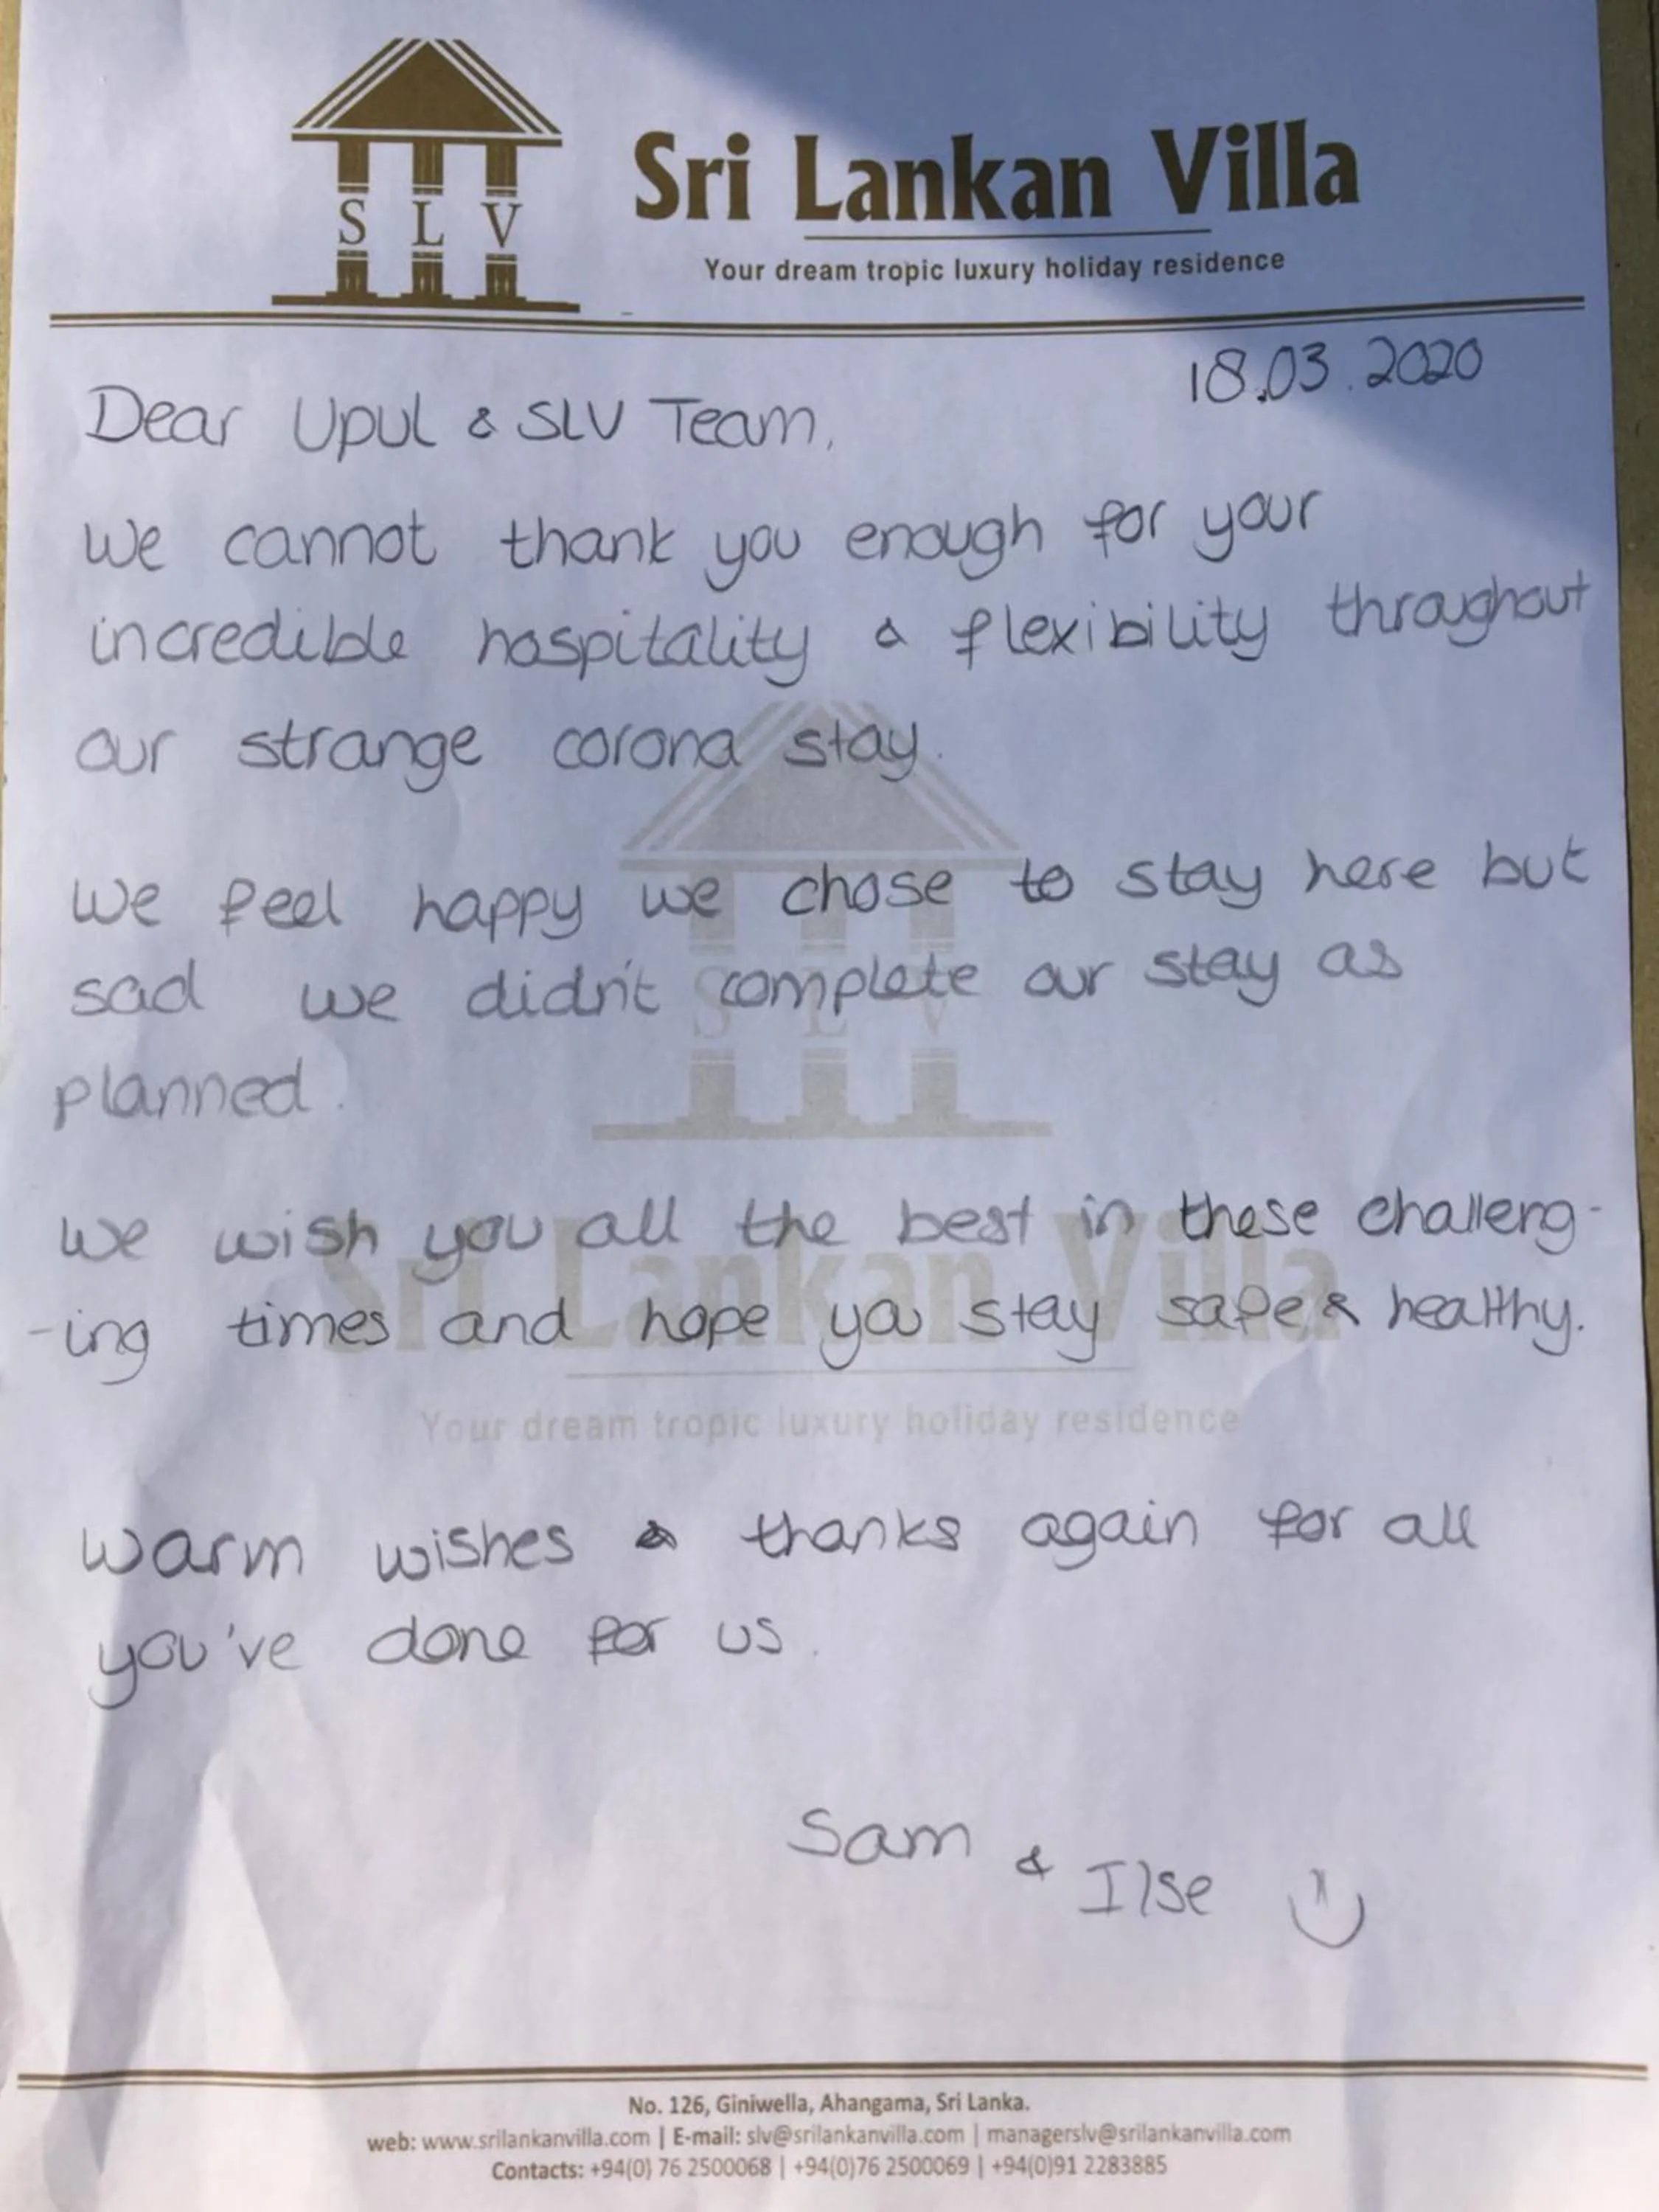 S L V
Sri Lankan Villa
Your dream tropic luxury holiday residence
18.03.2020
Dear Upul & SLV Team,
We cannot thank you enough for your
incredible hospitality & flexibility throughout
our strange corona stay.
We feel happy we chose to stay here but
sad we didn't complete our stay as
planned.
We wish you all the best in these challeng-
-ing times and hope you stay safe & healthy.
S L V
Sri Lankan Villa
Your dream tropic luxury holiday residence
Warm wishes & thanks again for all
you've done for us.
Sam & Ilse
No. 126, Giniwella, Ahangama, Sri Lanka.
web: www.srilankanvilla.com | E-mail: slv@srilankanvilla.com | managerslv@srilankanvilla.com
Contacts: +94(0) 76 2500068 | +94(0)76 2500069 | +94(0)91 2283885